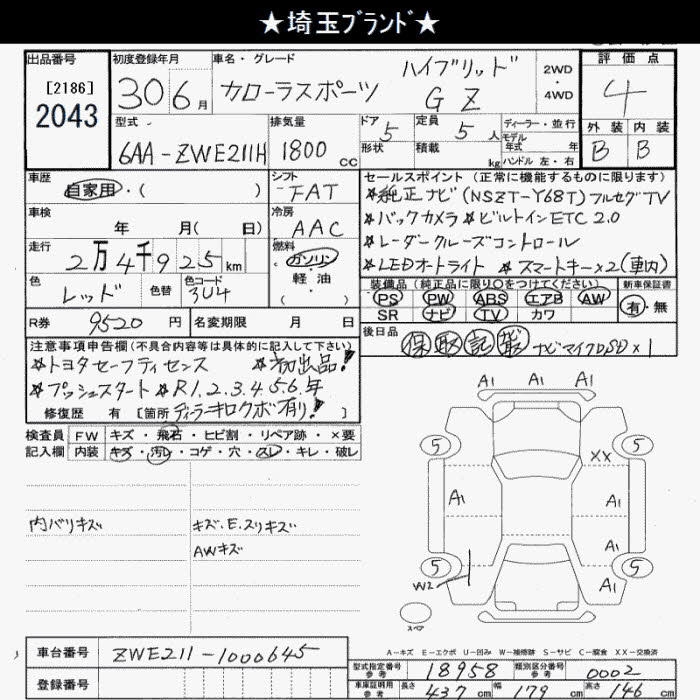 ★埼玉ブランド★
出品番号 初度登録年月 車名・グレード 評価点
[2186] 30 6月 カローラスポーツ ハイブリッド 2WD 4
2043 GZ 4WD
型式 排気量 ドア 定員 ディーラー・並行 外装 内装
6AA-ZWE211H 1800cc 5 5人 モデル年式 年 B B
形状 積載 kg ハンドル 左・右
車歴 シフト セールスポイント (正常に機能するものに限ります)
自家用・( ) FAT ★純正ナビ(NSZT-Y68T)フルセグTV
車検 冷房 ★バックカメラ ★ビルトインETC2.0
年 月( 日) AAC ★レーダークルーズコントロール
走行 燃料 ★LEDオートライト ★スマートキー×2(車内)
2万4千925km ガソリン・軽油
色 色替 色コード 装備品(純正品に限り○をつけてください) 新車保証書
レッド 3U4 PS PW ABS エアB AW 有・無
SR ナビ TV カワ
R券 9520円 名変期限 月 日 後日品
保 取 記 ナビマイクロSD×1
注意事項申告欄(不具合内容等は具体的に記入して下さい)
★トヨタセーフティセンス ★初出品!
★プッシュスタート ★R1.2.3.4.5.6.年
修復歴 有 [箇所 ディーラーキロクボ有り!
検査員 FW キズ・飛石・ヒビ割・リペア跡・×要
記入欄 内装 キズ・汚レ・コゲ・穴・スレ・キレ・破レ
A1 A1 A1
5 5
XX
A1 A1
内バリキズ キズ.E.スリキズ
AWキズ
A1
5 5
W2 A1
スペア
A-キズ E-エクボ U-凹み W-補修跡 S-サビ C-腐食 XX-交換済
車台番号 ZWE211-1000645
登録番号
型式指定番号 参考 18958 類別区分番号 参考 0002
車庫証明用 参考 長さ 437cm 幅 179cm 高さ 146cm